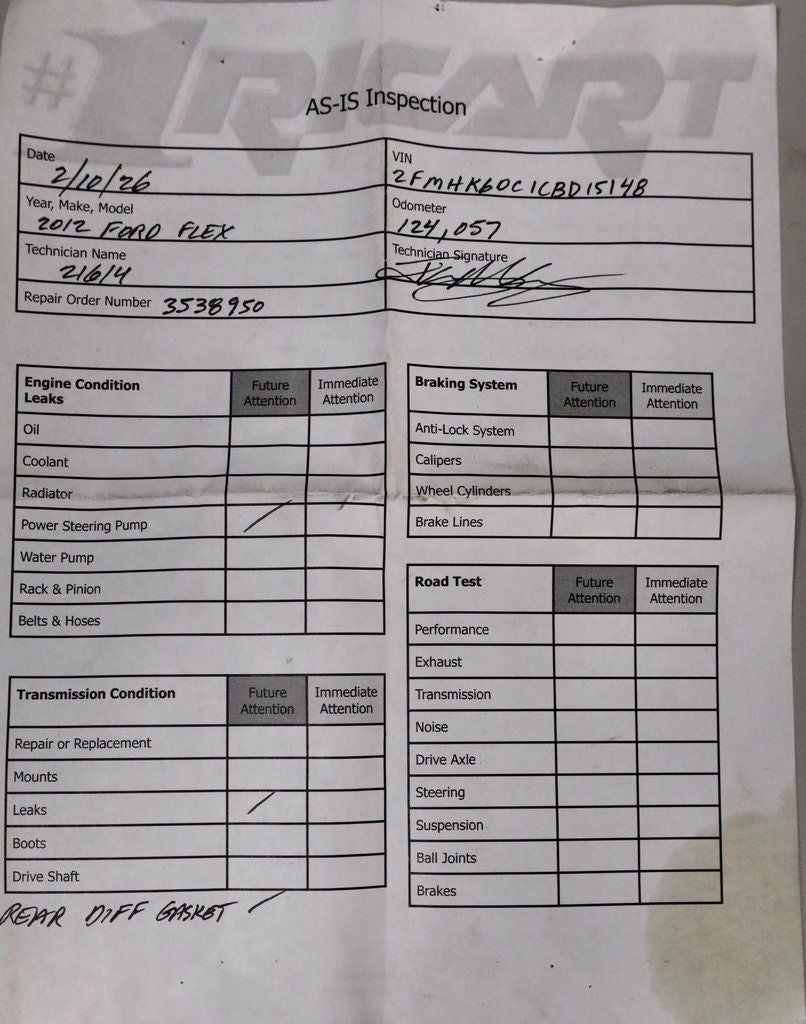 #1 RICART
AS-IS Inspection
Date 2/10/26
VIN 2FMHK60C1CBD15148
Year, Make, Model 2012 FORD FLEX
Odometer 124,057
Technician Name 21614
Technician Signature
Repair Order Number 3538950
Engine Condition Leaks Future Attention Immediate Attention
Oil
Coolant
Radiator
Power Steering Pump /
Water Pump
Rack & Pinion
Belts & Hoses
Transmission Condition Future Attention Immediate Attention
Repair or Replacement
Mounts
Leaks /
Boots
Drive Shaft
REAR DIFF GASKET /
Braking System Future Attention Immediate Attention
Anti-Lock System
Calipers
Wheel Cylinders
Brake Lines
Road Test Future Attention Immediate Attention
Performance
Exhaust
Transmission
Noise
Drive Axle
Steering
Suspension
Ball Joints
Brakes